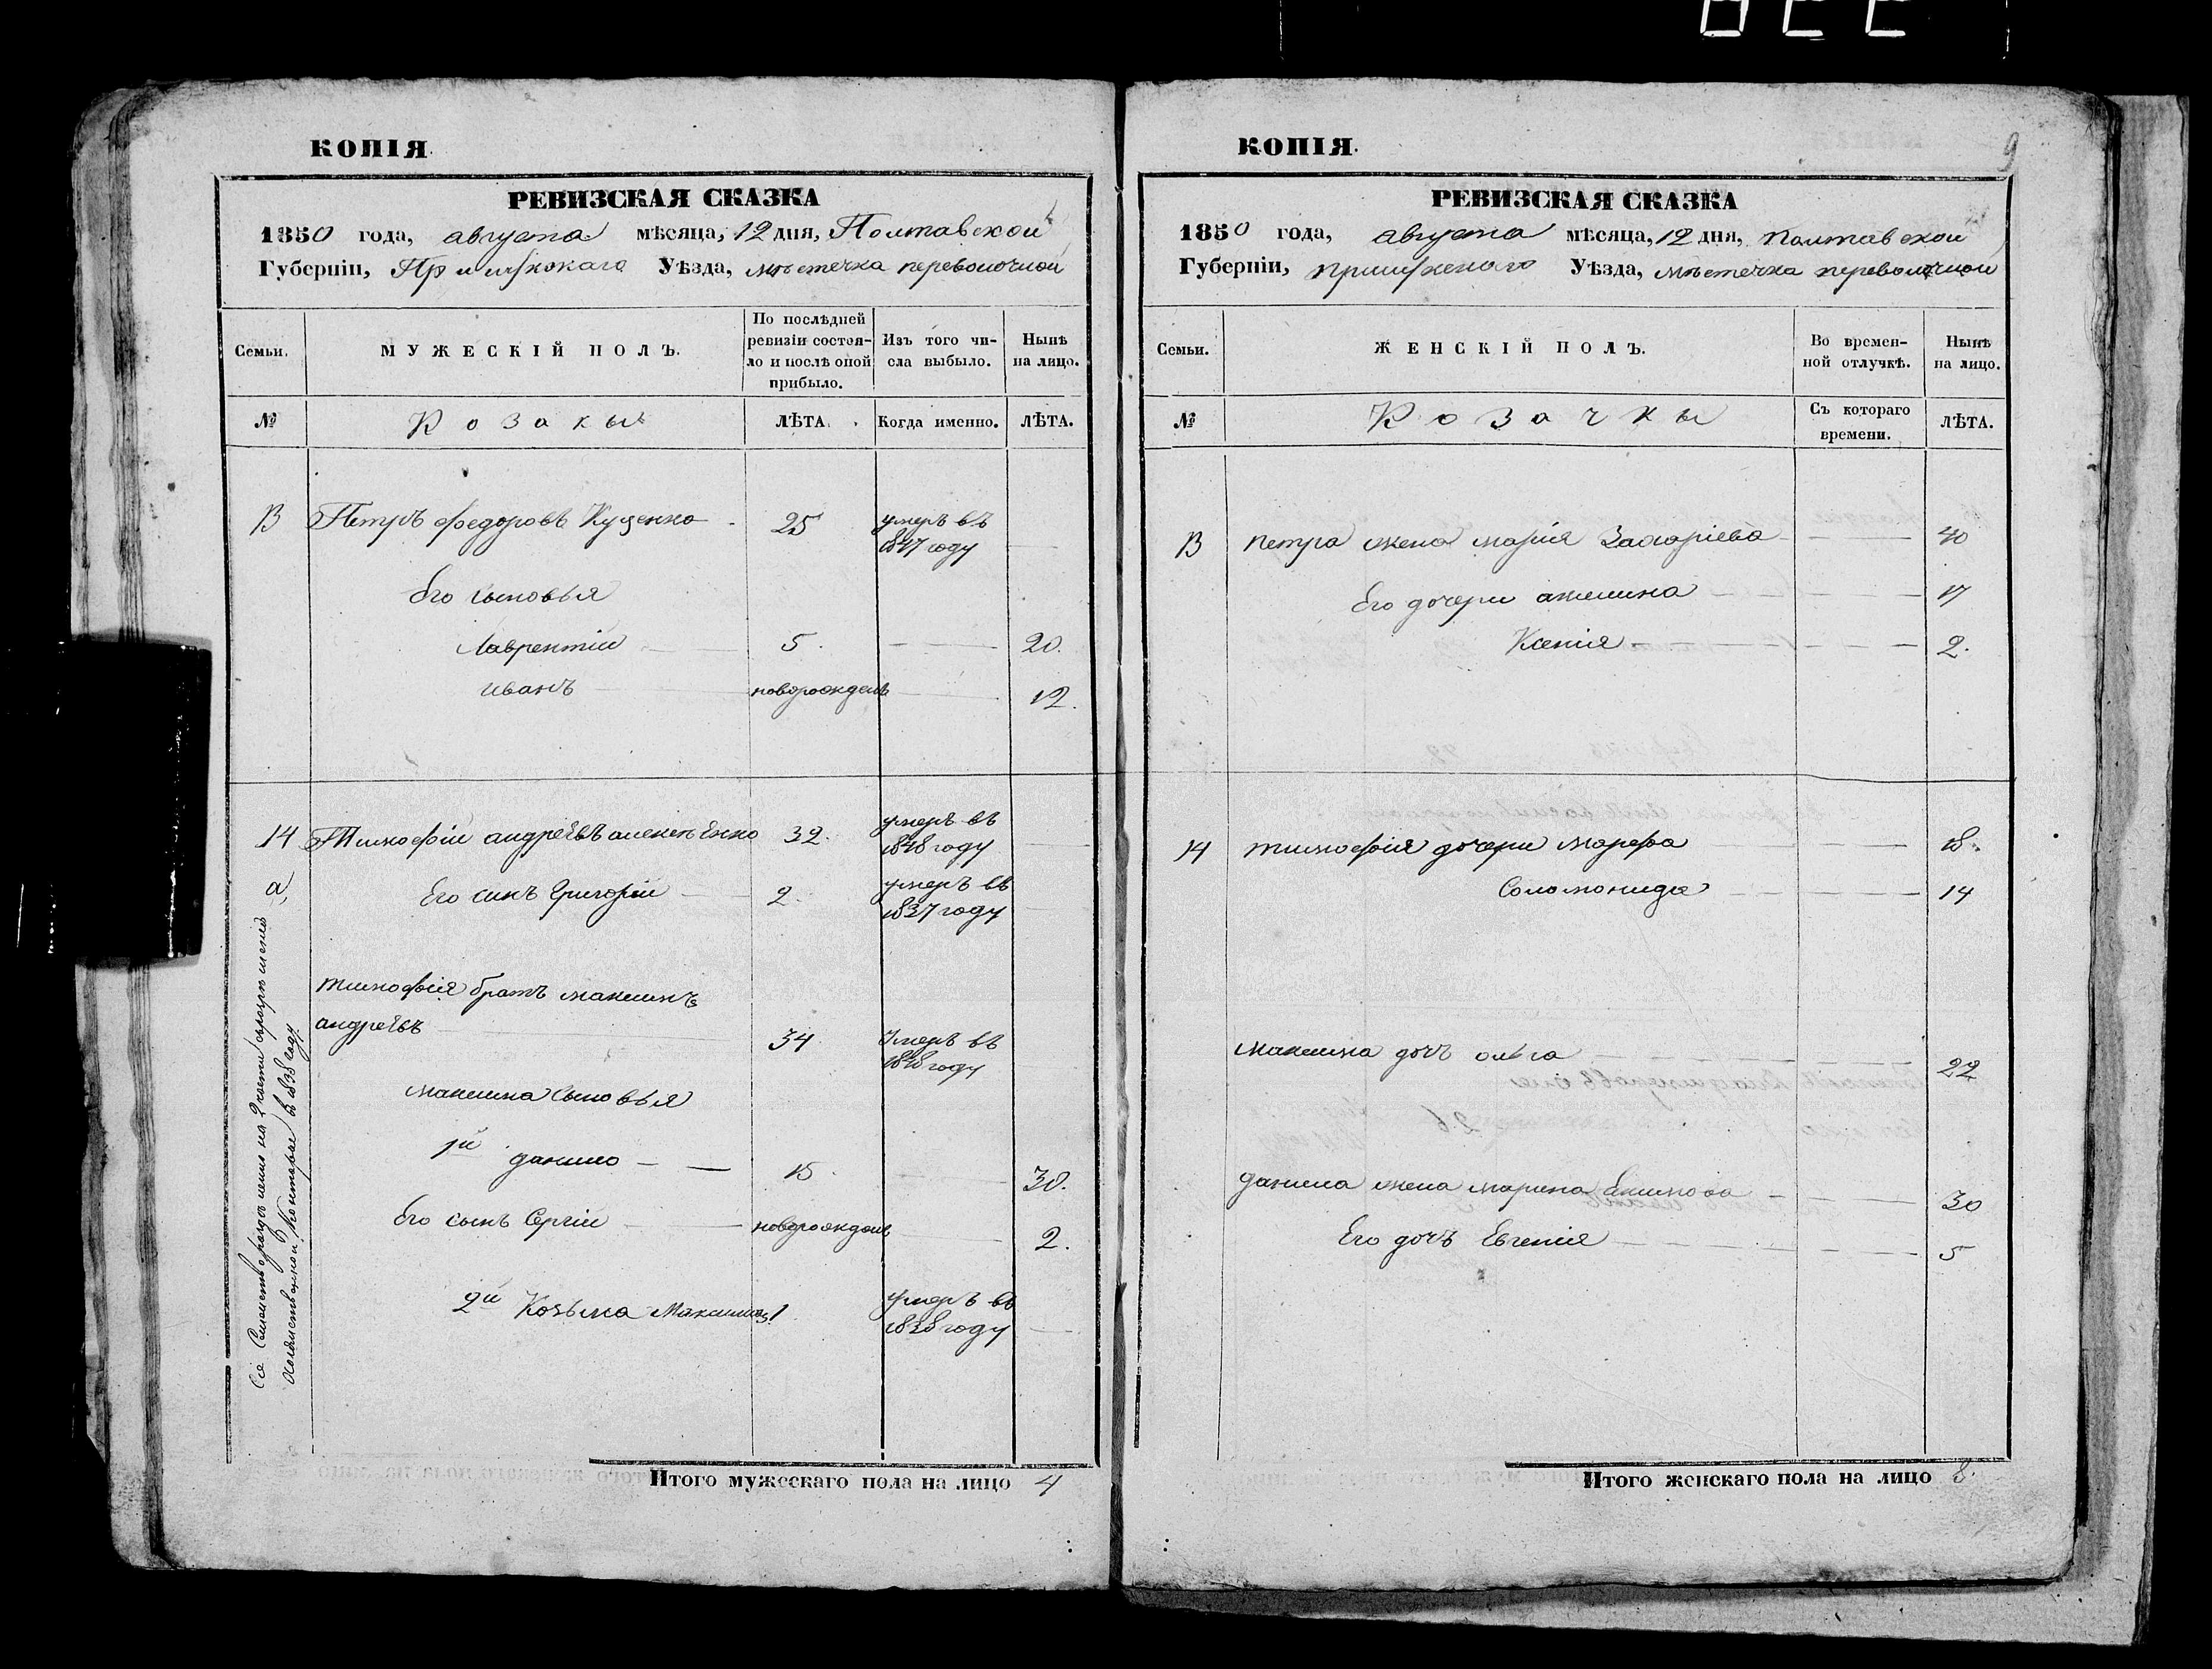 КОПІЯ.
РЕВИЗСКАЯ СКАЗКА
1850 года, августа мѣсяца, 12 дня, Полтавской
Губерніи, Прилукскаго Уѣзда, мѣстечка переволочной
Семьи.
МУЖЕСКІЙ ПОЛЪ.
По послѣдней ревизіи состоя-ло и послѣ оной прибыло.
Изъ того чи-сла выбыло.
Нынѣ на лицо.
№
Козаки
ЛѢТА.
Когда именно.
ЛѢТА.
13 Петръ федоровъ Куценко 25 умеръ въ 1847 году
Его сыновья
Лаврентій 5. 20.
иванъ новорожденъ 12.
14 Тимофій андреевъ 32. умеръ въ 1848 году
а, Его синъ Григорій 2. умеръ въ 1837 году
тимофія братъ максимъ
андреевъ 34 Умеръ въ 1848 году
максима сыновья
1й данило 15 30.
Его сынъ Сергій новорожденъ 2.
2й Козьма Максимовъ 1 умеръ въ 1838 году
Сіе Семейство раздѣлено на 2 части съ разрѣшенія
хозяйственной Конторы въ 1838 году.
Итого мужескаго пола на лицо 4
КОПІЯ.
9
РЕВИЗСКАЯ СКАЗКА
1850 года, августа мѣсяца, 12 дня, Полтавской
Губерніи, прилукскаго Уѣзда, мѣстечка переволочной
Семьи.
ЖЕНСКІЙ ПОЛЪ.
Во времен-ной отлучкѣ.
Нынѣ на лицо.
№
Козачки
Съ котораго времени.
ЛѢТА.
13 петра жена марія Захаріева 40
Его дочери акилина 17
Ксенія 2.
14 тимофія дочери марфа 18.
Соломонида 14
максима дочъ ольга 22
данила жена марина Екимова 30
Его дочъ Евгенія 5
Итого женскаго пола на лицо 8.